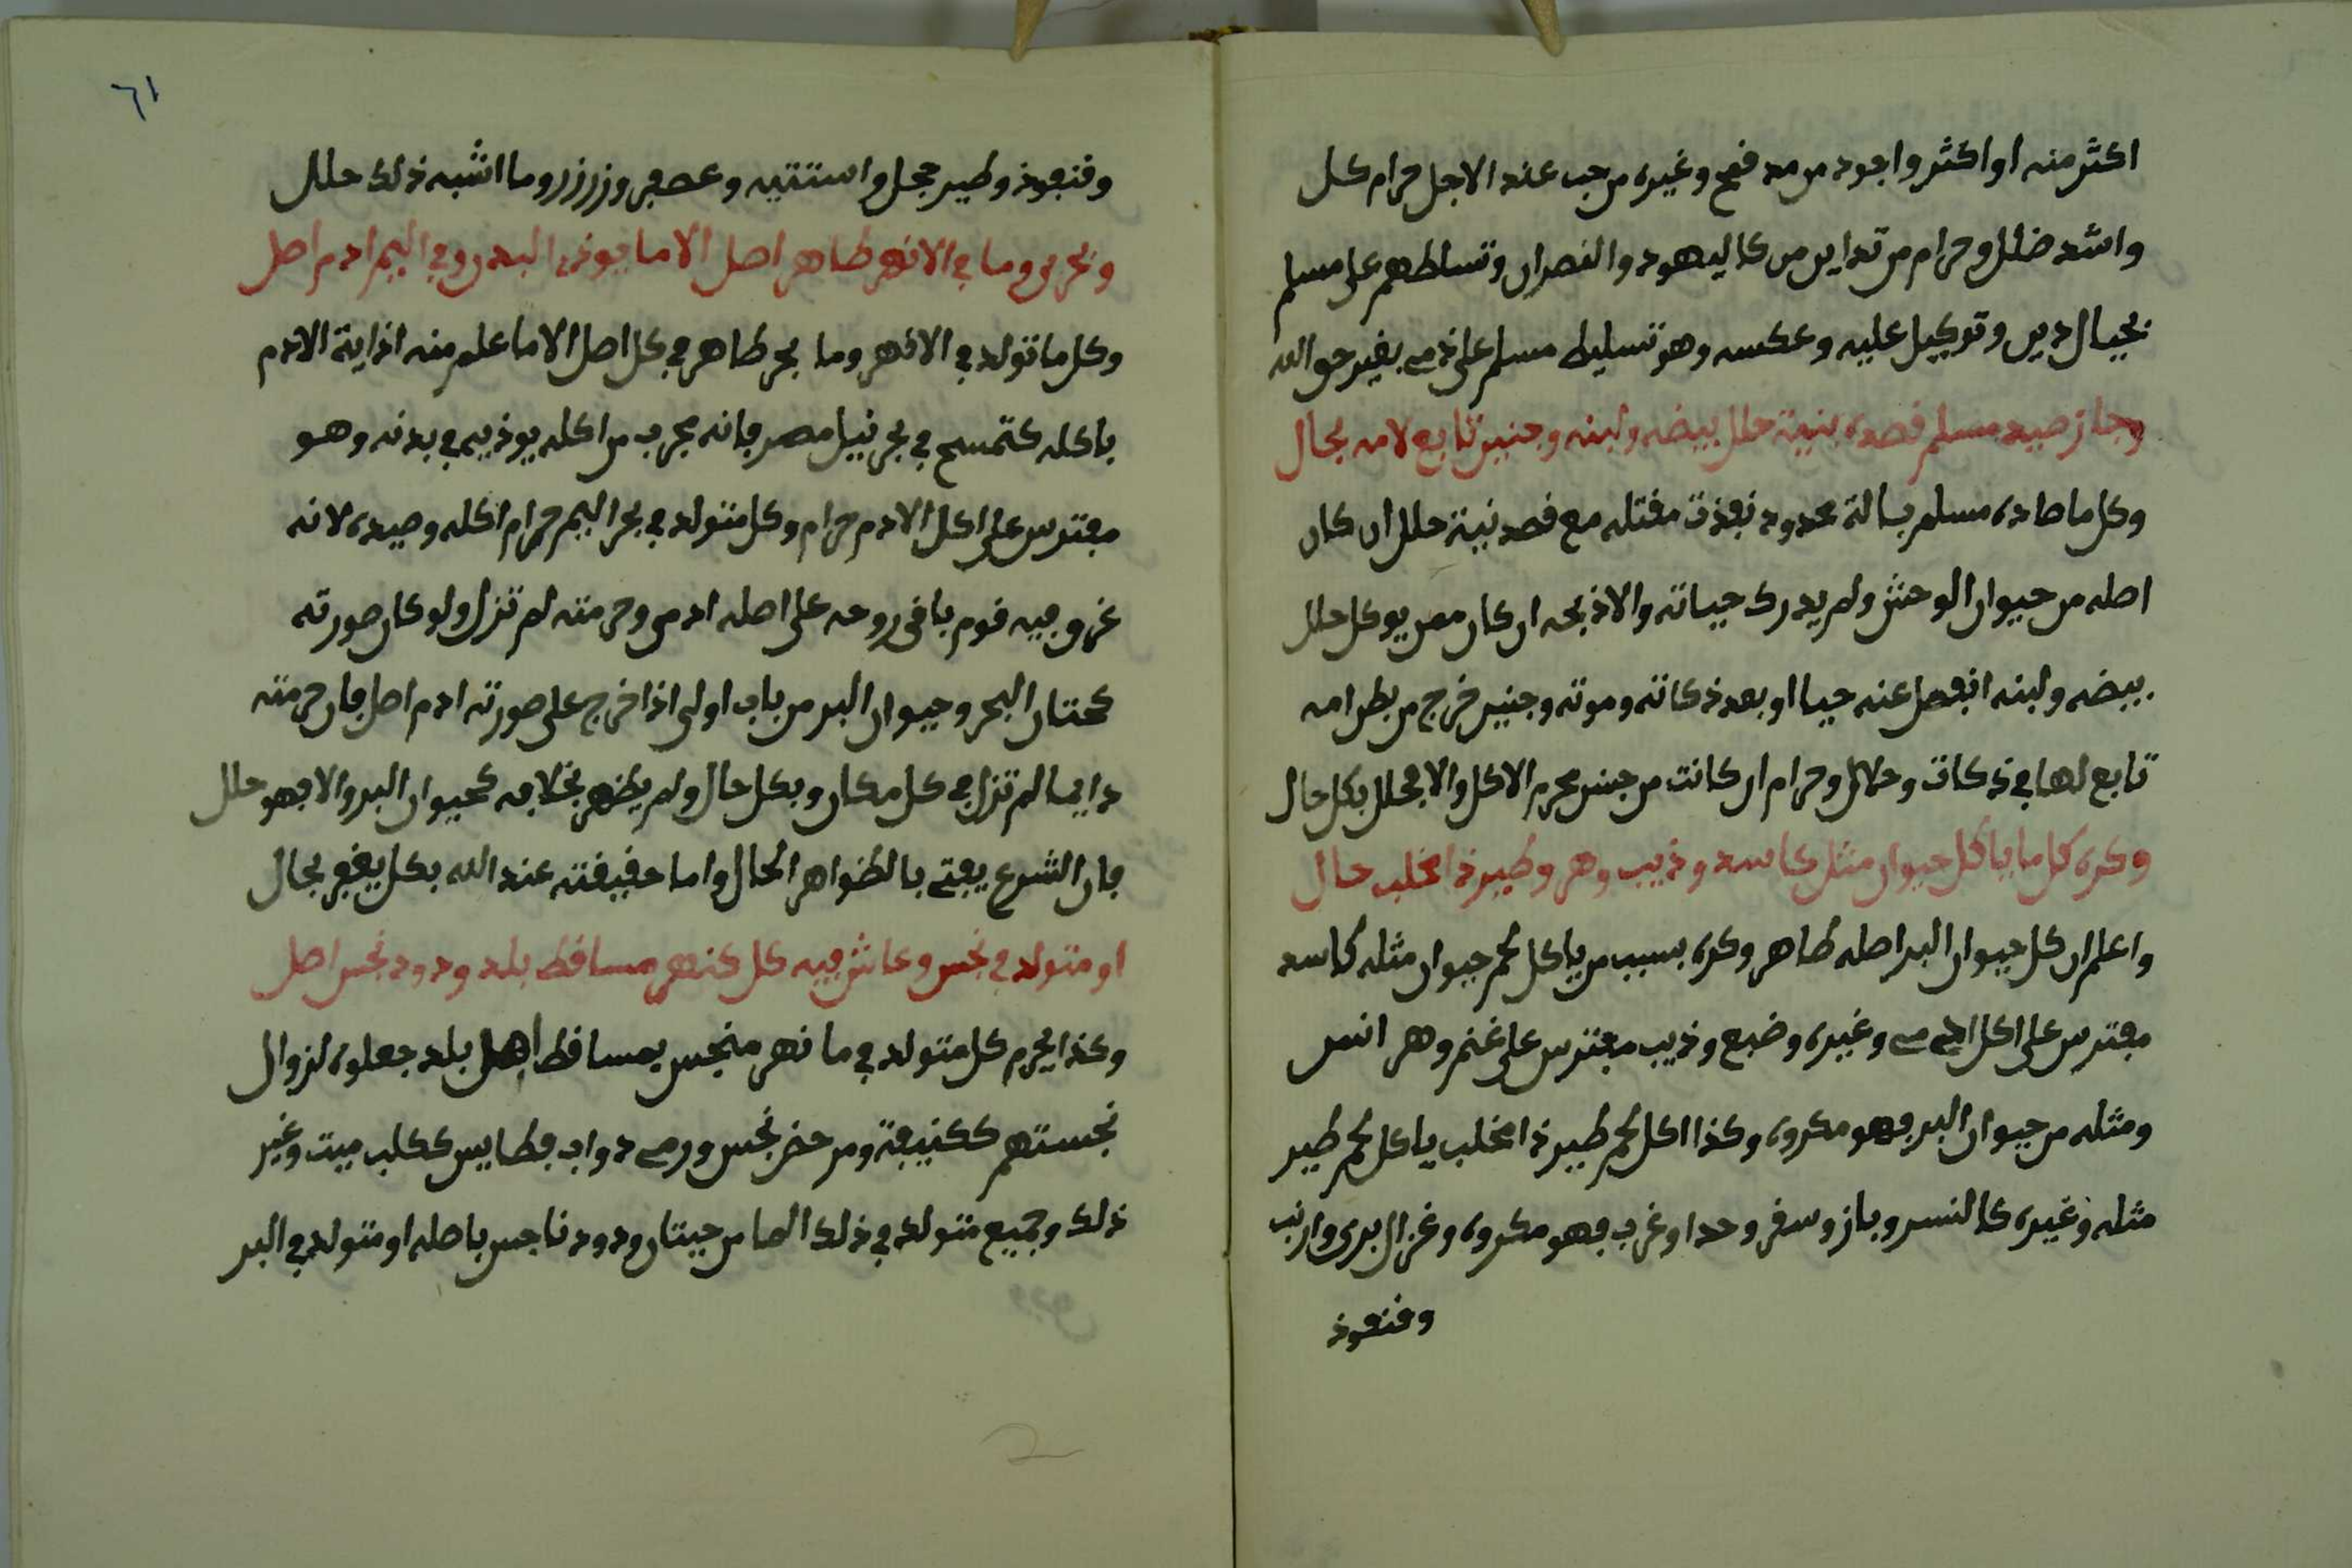 اكثر منه او اكثر واجود من مد قمح وغيره من حب عند الاجل حرام كل
واشد ضلل وحرام من تداين من كاليهود والنصران وتسلطهم على مسلم
بحيال دين وتوكيل عليه وعكسه وهو تسليط مسلم على ذمي بغير حق الله
وجاز صيد مسلم قصده بنية حلل بيضه ولبنه وجنين تابع لامه بحال
وكل ما صاده مسلم بسالة محدود نفذت مقتله مع قصد نية حلل ان كان
اصله من حيوان الوحش ولم يدرك حياته والا ذبحه ان كان ممن يوكل حلل
بيضه ولبنه انفصل عنه حيا او بعد ذكاته وموته وجنين خرج من بطن امه
تابع لها في ذكات وحلال وحرام ان كانت من جنس محرم الاكل والا فحلل بكل حال
وكره كل ما ياكل حيوان مثل كاسد وذيب وهر وطير ذا مخلب حال
واعلم ان كل حيوان البر اصله طاهر وكره بسبب من ياكل لحم حيوان مثله كاسد
مفترس على اكل ادمي وغيره وضبع وذيب مفترس على غنم وهر انس
ومثله من حيوان البر فهو مكروه وكذا اكل لحم طير ذا مخلب ياكل لحم طير
مثله وغيره كالنسر وباز وسقر وحدا وغرب فهو مكروه وغزال بري وارنب
وقنفوذ
٦١
وقنفوذ وطير حجل واستتيه وعصفر وزرزر وما اشبه ذلك حلل
وبحري وما في الانهر طاهر اصل الا ما يوذي البدن وفي اليم ادم اصل
وكل ما تولد في الانهر وما بحر طاهر في كل اصل الا ما علم منه اذاية الادم
باكله كتمسح في بحر نيل مصر فانه مجرب من اكله يوذيه في بدنه وهو
مفترس على اكل الادم حرام وكل متولد في بحر اليم حرام اكله وصيده لانه
غرق فيه قوم باقى روحه على اصله ادمى وحرمته لم تزل ولو كان صورته
كحتان البحر وحيوان البر من باب اولى اذا خرج على صورته ادم اصل فان حرمته
دايما لم تزل في كل مكان وبكل حال ولم يظهر بخلافه كحيوان البر والا فهو حلل
فان الشرع يفتي بالظواهر الحال واما حقيقته عند الله بكل يغفر بحال
او متولد في نجس وعاش فيه كل كنهر مساقط بلد ودود نجس اصل
وكذا يحرم كل متولد في ما نهر منجس بمساقط اهل بلد جعلوه لزوال
نجستهم ككنيفة ومرحض نجس ورمي دواب فطايس ككلب ميت وغير
ذلك وجميع متولد في ذلك الما من حيتان ودود ناجس باصله او متولد في البر